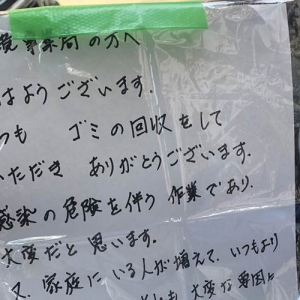 事業局の方へ
はようございます.
つも ゴミの回収をして
いただき ありがとうございます.
感染の危険を伴う作業であり、
大変だと思います。
又、家庭にいる人が増えて、いつもより
も大変な要因